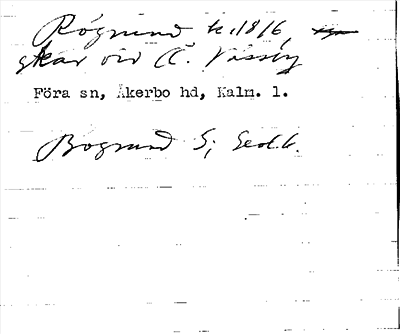 Rogrund k. 1816,
skär vid K. Vissby
Föra sn, Åkerbo hd, Kalm. l.
Bogrund S; Geol.b.